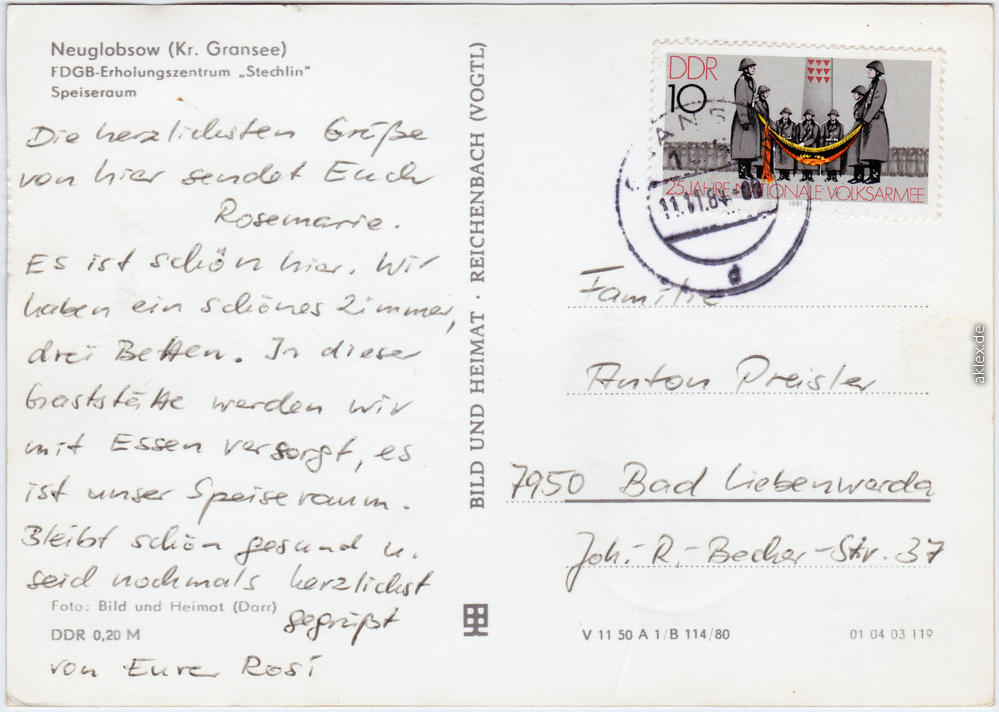 Neuglobsow (Kr. Gransee)
FDGB-Erholungszentrum „Stechlin"
Speiseraum
Die herzlichsten Grüße
von hier sendet Euch
Rosemarie.
Es ist schön hier. Wir
haben ein schönes Zimmer,
drei Betten. In dieser
Gaststätte werden wir
mit Essen versorgt, es
ist unser Speiseraum.
Bleibt schön gesund u.
seid nochmals herzlichst
gegrüßt
von Eurer Rosi
Foto: Bild und Heimat (Darr)
DDR 0,20 M
BILD UND HEIMAT · REICHENBACH (VOGTL)
DDR
10
25 JAHRE NATIONALE VOLKSARMEE
1981
11.11.84-00
d
Familie
Anton Preisler
7950 Bad Liebenwerda
Joh.-R.-Becher-Str. 37
V 11 50 A 1/B 114/80
01 04 03 119
aklex.de